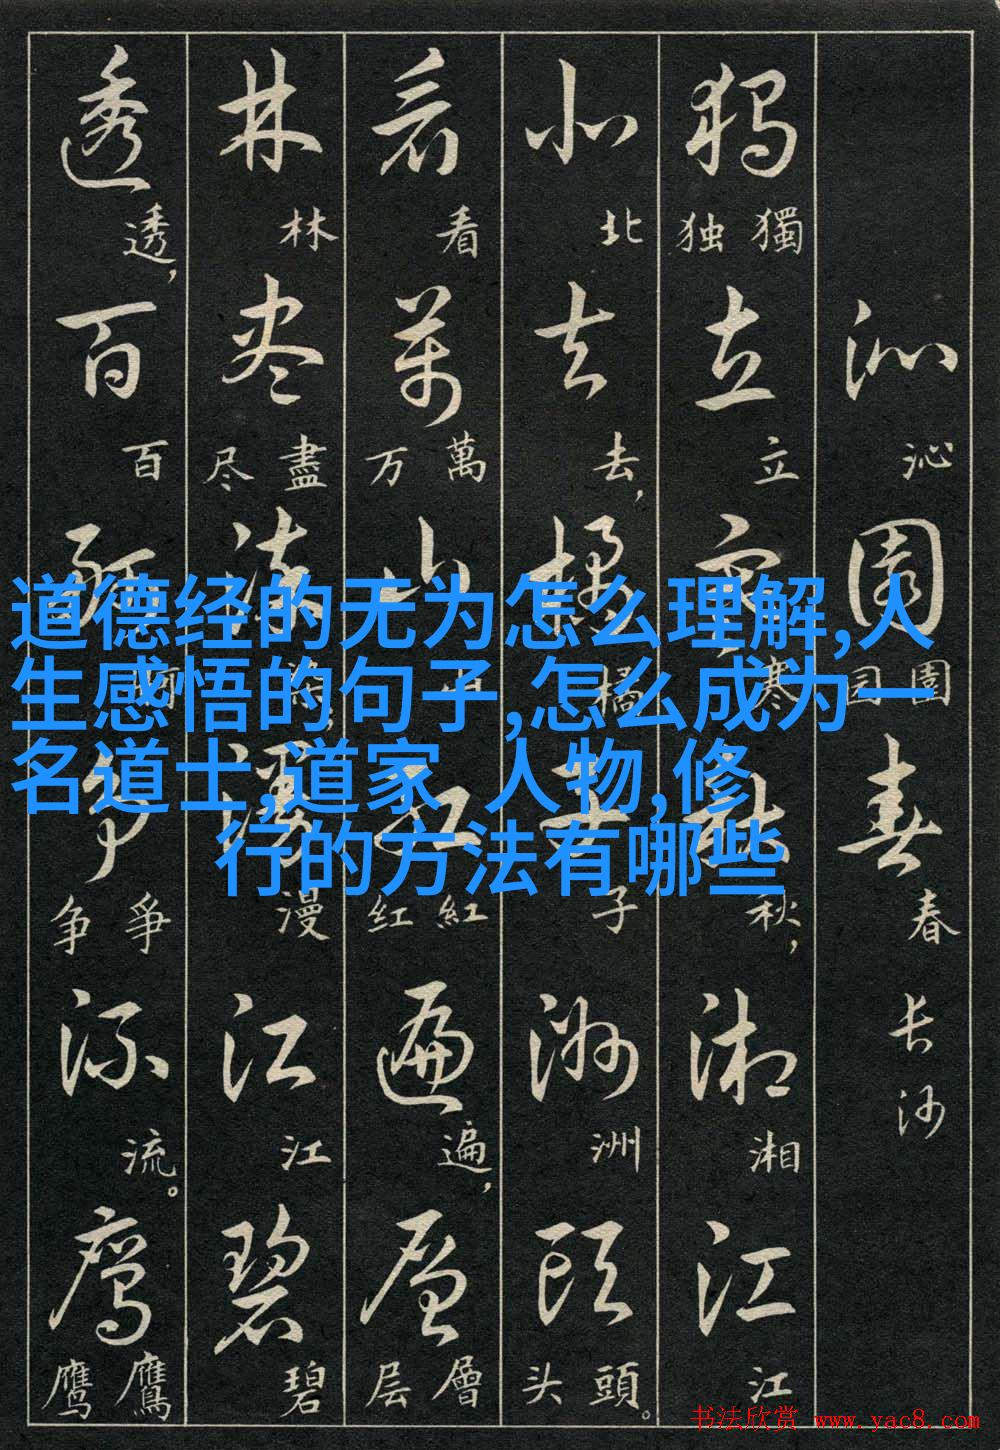 道德经的无为怎么理解,人
生感悟的句子,怎么成为一
名道士,道家 人物,修
行的方法有哪些
沁 沁 園 園园 春 春 长沙
独 獨独 立 立 寒 寒 秋 秋, 湘 湘 江 江
北 北 去 去, 橘 橘 子 子 洲 洲 頭 頭头。
看 看 萬 萬万 山 红 紅红 遍 遍, 層 層层
林 林 尽 盡尽 染 漫 漫 江 江 碧 碧
透 透, 百 百 舸 争 爭争 流 流。 鹰 鷹鹰
书法欣赏 www.yac8.com